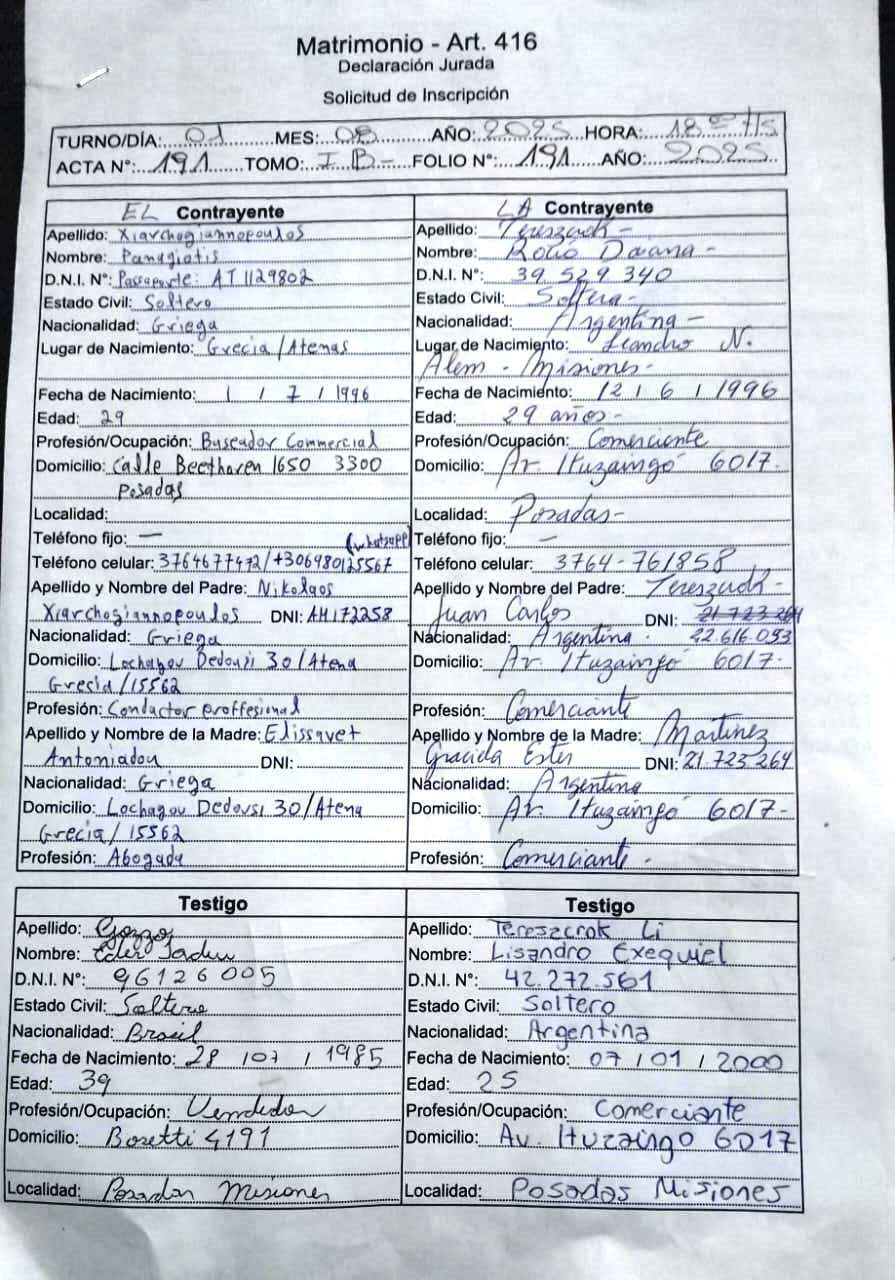 Matrimonio - Art. 416
Declaración Jurada
Solicitud de Inscripción
TURNO/DÍA: 01 MES: 08 AÑO: 2025 HORA: 18 00 Hs
ACTA N°: 191 TOMO: I B- FOLIO N°: 191 AÑO: 2025
EL Contrayente
Apellido: Xiarchogiannopoulos
Nombre: Panagiotis
D.N.I. N°: Passaporte: AT1129802
Estado Civil: Soltero
Nacionalidad: Griega
Lugar de Nacimiento: Grecia/Atenas
Fecha de Nacimiento: 1 / 7 / 1996
Edad: 29
Profesión/Ocupación: Buscador Commercial
Domicilio: Calle Beethoven 1650 3300
Posadas
Localidad:
Teléfono fijo: — (whatsapp)
Teléfono celular: 3764677472/+306980125567
Apellido y Nombre del Padre: Nikolaos
Xiarchogiannopoulos DNI: AM172258
Nacionalidad: Griega
Domicilio: Lochagou Dedousi 30/Atena
Grecia/15562
Profesión: Conductor proffesional
Apellido y Nombre de la Madre: Elissavet
Antoniadou DNI:
Nacionalidad: Griega
Domicilio: Lochagou Dedousi 30/Atena
Grecia/15562
Profesión: Abogada
LA Contrayente
Apellido: Tereszcuk -
Nombre: Rocio Daiana -
D.N.I. N°: 39 529 340
Estado Civil: Soltera -
Nacionalidad: Argentina -
Lugar de Nacimiento: Leandro N.
Alem - Misiones -
Fecha de Nacimiento: 12 / 6 / 1996
Edad: 29 años -
Profesión/Ocupación: Comerciante
Domicilio: Av. Ituzaingó 6017.
Localidad: Posadas -
Teléfono fijo: —
Teléfono celular: 3764-761858
Apellido y Nombre del Padre: Tereszcuk -
Juan Carlos DNI: 21.723.264
Nacionalidad: Argentina. 22.616.093
Domicilio: Av. Ituzaingó 6017-
Profesión: Comerciante
Apellido y Nombre de la Madre: Martinez
Graciela Ester DNI: 21.723.264
Nacionalidad: Argentina
Domicilio: Av. Ituzaingó 6017-
Profesión: Comerciante -
Testigo
Apellido:
Nombre: Eder
D.N.I. N°: 96126005
Estado Civil: Soltero
Nacionalidad: Brasil
Fecha de Nacimiento: 28 / 07 / 1985
Edad: 39
Profesión/Ocupación: Vendedor
Domicilio: Bosetti 4191
Localidad: Posadas Misiones
Testigo
Apellido: Tereszcrok Li
Nombre: Lisandro Exequiel
D.N.I. N°: 42.272.561
Estado Civil: Soltero
Nacionalidad: Argentina
Fecha de Nacimiento: 07 / 01 / 2000
Edad: 25
Profesión/Ocupación: Comerciante
Domicilio: Av. Ituzaingo 6017
Localidad: Posadas Misiones